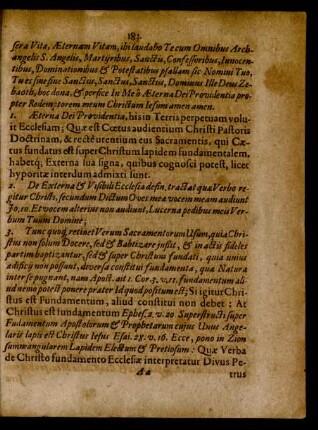 183.
sera Vita, Æternam Vitam, ibi laudabo Tecum Omnibus Arch-
angelis S. Angelis, Martyribus, Sanctis, Confessoribus, Innocen-
tibus, Dominationibus & Potestatibus psallam sic Nomini Tuo,
Tu es sine fine Sanctus, Sanctus, Sanctus, Dominus Ille Deus Ze-
baoth, hoc dona, & perfice In Me ô Æterna Dei Providentia pro-
pter Redemptorem meum Christum Iesum amen amen.
1. Æterna Dei Providentia, his in Terris perpetuam volu-
it Ecclesiam; Quæ est Cœtus audientium Christi Pastoris
Doctrinam, & recte utentium eus Sacramentis, qui Cæ-
tus fundatus est super Christum lapidem fundamentalem,
habetq; Externa sua signa, quibus cognosci potest, licet
hypocritæ interdum admixti sunt.
2. De Externa & Visibili Ecclesia defin, tractat qua Verbo re-
gitur Christi, secundum Dictum Oves meæ vocem meam audiunt
Jo, 10. Et vocem alterius non audiunt, Lucerna pedibus meis Ver-
bum Tuum Domine;
3. Tunc quoq; retinet Verum Sacramentorum Usum, quia Chri-
stus non solum Docere, sed & Baptizare jussit, & in actis fideles
partim baptizantur, sed & super Christum fundati, quia unius
ædificii non possunt, diversa constitui fundamenta, quæ Natura
inter se pugnant, nam Apost. ait 1. Cor. 3, v. 11. fundamentum ali-
ud nemo potest ponere præter Id quod positum est; Si igitur Chri-
stus est Fundamentum, aliud constitui non debet: At
Christus est fundamentum Ephes. 2. v. 20 Superstructi super
Fundamentum Apostolorum & Prophetarum cujus Unus Ange-
laris lapis est Christus Iesus Esai. 28. v. 16. Ecce, pono in Zion
summum angularem Lapidem Electum & Pretiosum: Quæ Verba
de Christo fundamento Ecclesiæ interpretatur Divus Pe-
Aa trus